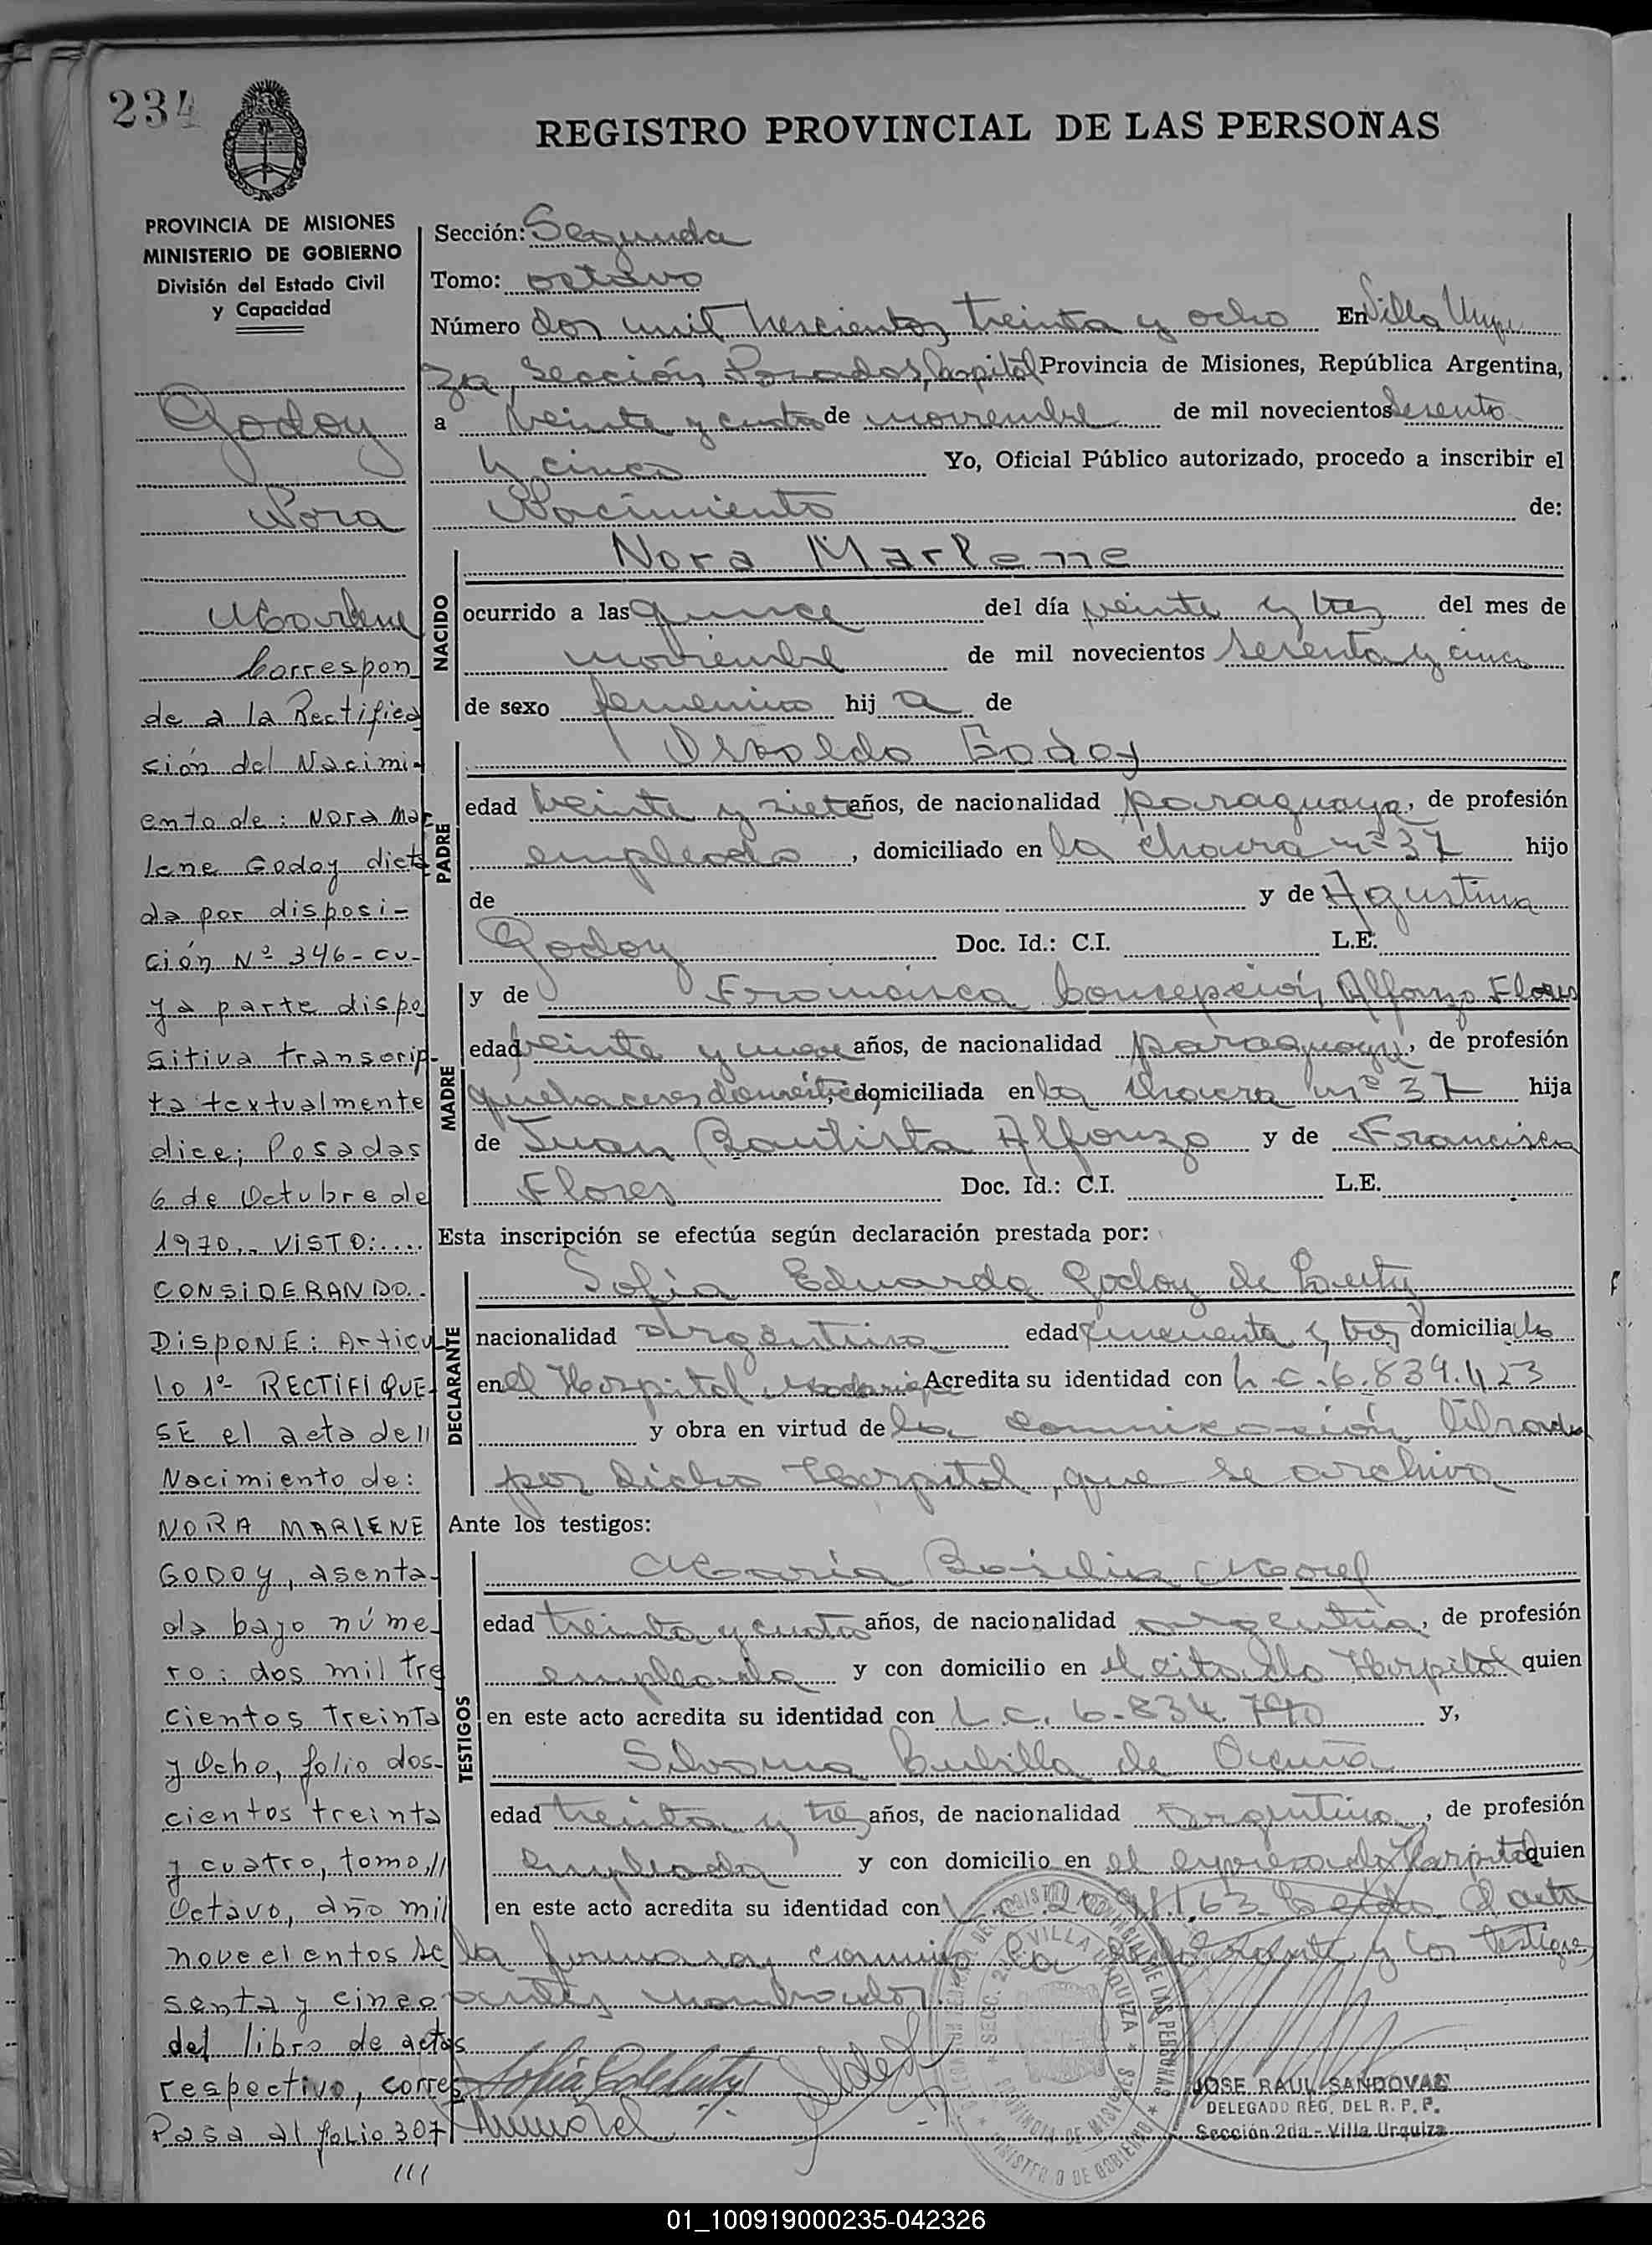 234
REGISTRO PROVINCIAL DE LAS PERSONAS
PROVINCIA DE MISIONES
MINISTERIO DE GOBIERNO
División del Estado Civil
y Capacidad
Godoy
Nora
Marlene
Correspon
de a la Rectifica
ción del Nacimi-
ento de: Nora Mar
lene Godoy dicta
da por disposi-
ción Nº 346- cu-
ya parte dispo
sitiva transcrip-
ta textualmente
dice; Posadas
6 de Octubre de
1970.- VISTO:....
CONSIDERANDO.-
DISPONE: Articu-
lo 1º- RECTIFIQUE-
SE el acta del //
Nacimiento de:
NORA MARLENE
GODOY, asenta-
da bajo núme-
ro: dos mil tre
cientos treinta
y Ocho, folio dos-
cientos treinta
y cuatro, tomo, //
Octavo, año mil
novecientos se
senta y cinco
del libro de actas
respectivo, corres
Pasa al folio 307
///
Sección: Segunda
Tomo: octavo
Número dos mil trescientos treinta y ocho En Villa Urqui
za, Sección Posadas, capital Provincia de Misiones, República Argentina,
a veinte y cuatro de noviembre de mil novecientos sesenta
y cinco Yo, Oficial Público autorizado, procedo a inscribir el
Nacimiento de:
NACIDO
Nora Marlene
ocurrido a las quince del día veinte y tres del mes de
noviembre de mil novecientos sesenta y cinco
de sexo femenino hij a de
PADRE
Osvaldo Godoy
edad veinte y siete años, de nacionalidad paraguaya, de profesión
empleado, domiciliado en la chacra nº 37 hijo
de y de Agustina
Godoy Doc. Id.: C.I. L.E.
MADRE
y de Francisca Concepción Alfonzo Flores
edad veinte y años, de nacionalidad paraguaya, de profesión
quehaceres domésticos, domiciliada en la chacra nº 37 hija
de Juan Bautista Alfonzo y de Francisca
Flores Doc. Id.: C.I. L.E.
Esta inscripción se efectúa según declaración prestada por:
DECLARANTE
Sofía Eduarda Godoy de
nacionalidad argentina edad cincuenta y tres domicilia da
en el Hospital Madariaga Acredita su identidad con L.C. 6.839.423
y obra en virtud de la comunicación librada
por dicho Hospital, que se archiva
Ante los testigos:
TESTIGOS
María Basilia
edad treinta y cuatro años, de nacionalidad argentina, de profesión
empleada y con domicilio en el citado Hospital quien
en este acto acredita su identidad con L.C. 6.834.790 y,
Silvana Cubilla de
edad treinta y tres años, de nacionalidad argentina, de profesión
empleada y con domicilio en el expresado Hospital quien
en este acto acredita su identidad con L.C. Leída el acta
la firman conmigo la declarante y los testigos
antes nombrados.
SECC. 2da. VILLA URQUIZA
PROVINCIA DE MISIONES
MINISTERIO DE GOBIERNO
JOSE RAUL SANDOVAL
DELEGADO REG. DEL R. P. P.
Sección 2da - Villa Urquiza
01_100919000235-042326